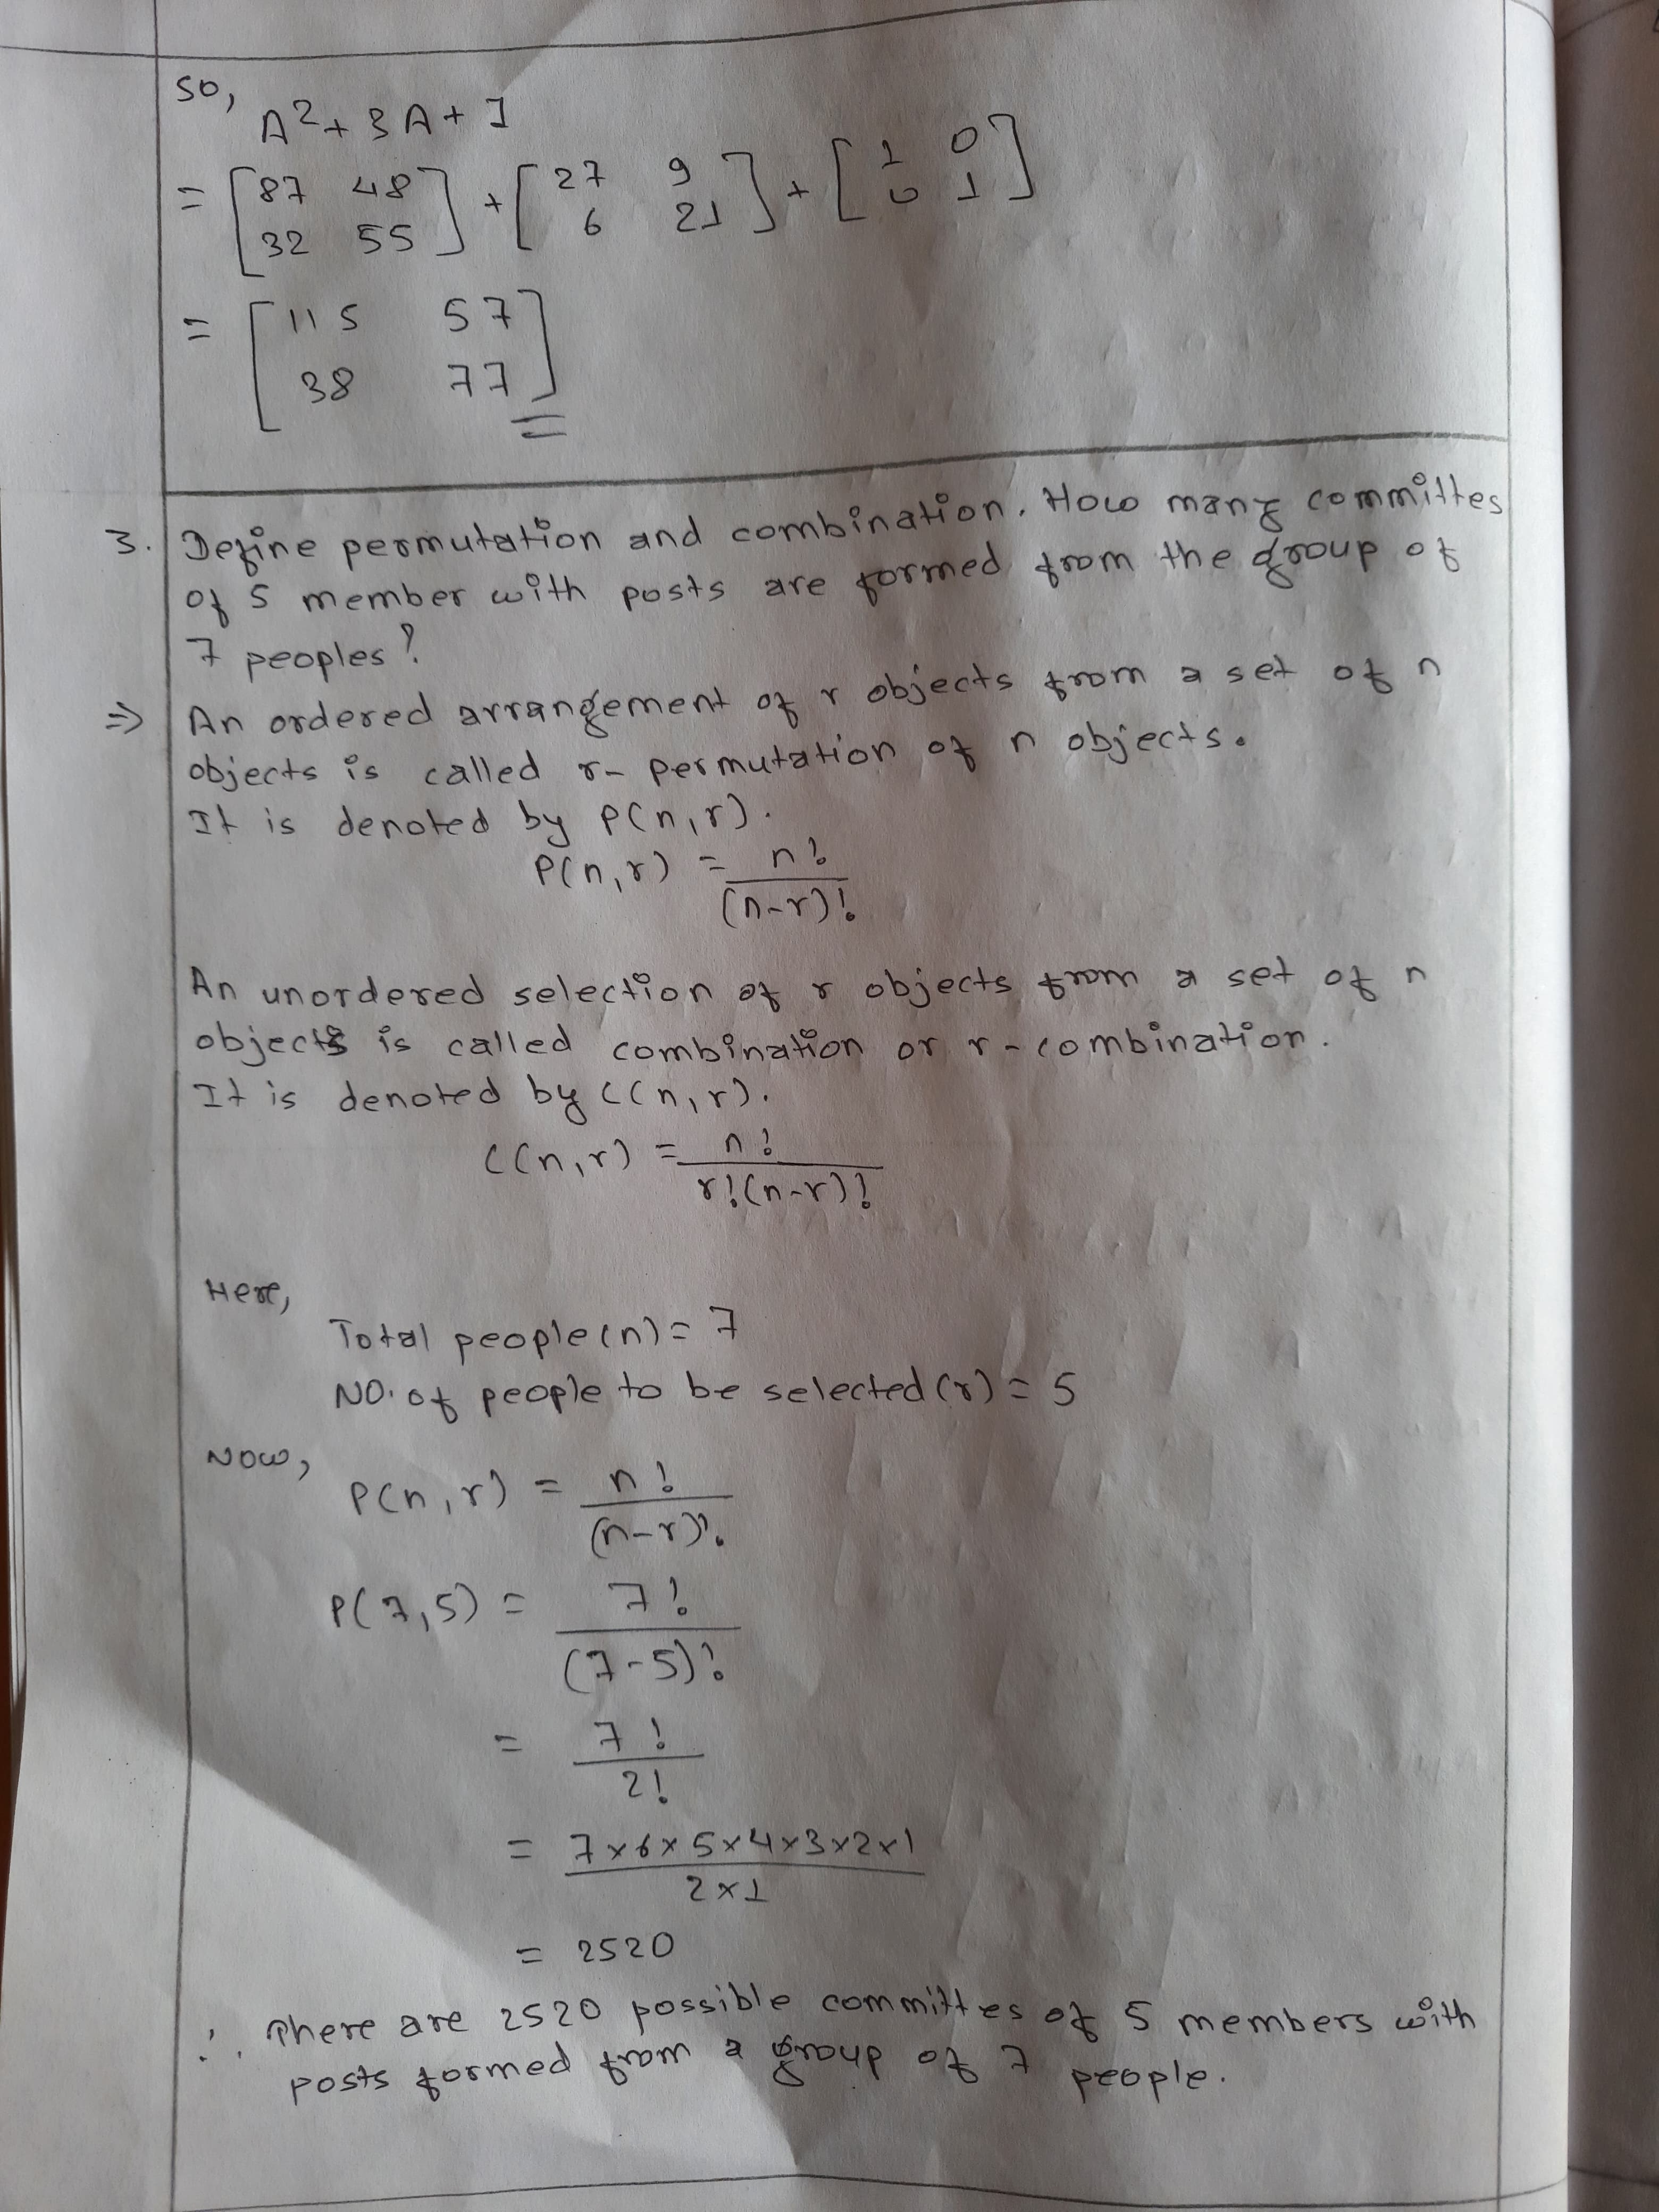 so,
A² + 3A + I
= [87 48] + [27 9] + [1 0]
[32 55] [6 21] [0 1]
= [115 57]
[38 77]
3. Define permutation and combination. How many committes
of 5 member with posts are formed from the group of
7 peoples?
⇒ An ordered arrangement of r objects from a set of n
objects is called r- permutation of n objects.
It is denoted by P(n,r).
P(n,r) = n!
(n-r)!
An unordered selection of r objects from a set of n
objects is called combination or r-combination.
It is denoted by C(n,r).
C(n,r) = n!
r!(n-r)!
Here,
Total people(n) = 7
NO. of people to be selected (r) = 5
Now,
P(n,r) = n!
(n-r)!
P(7,5) = 7!
(7-5)!
= 7!
2!
= 7×6×5×4×3×2×1
2×1
= 2520
∴ There are 2520 possible committes of 5 members with
posts formed from a group of 7 people.